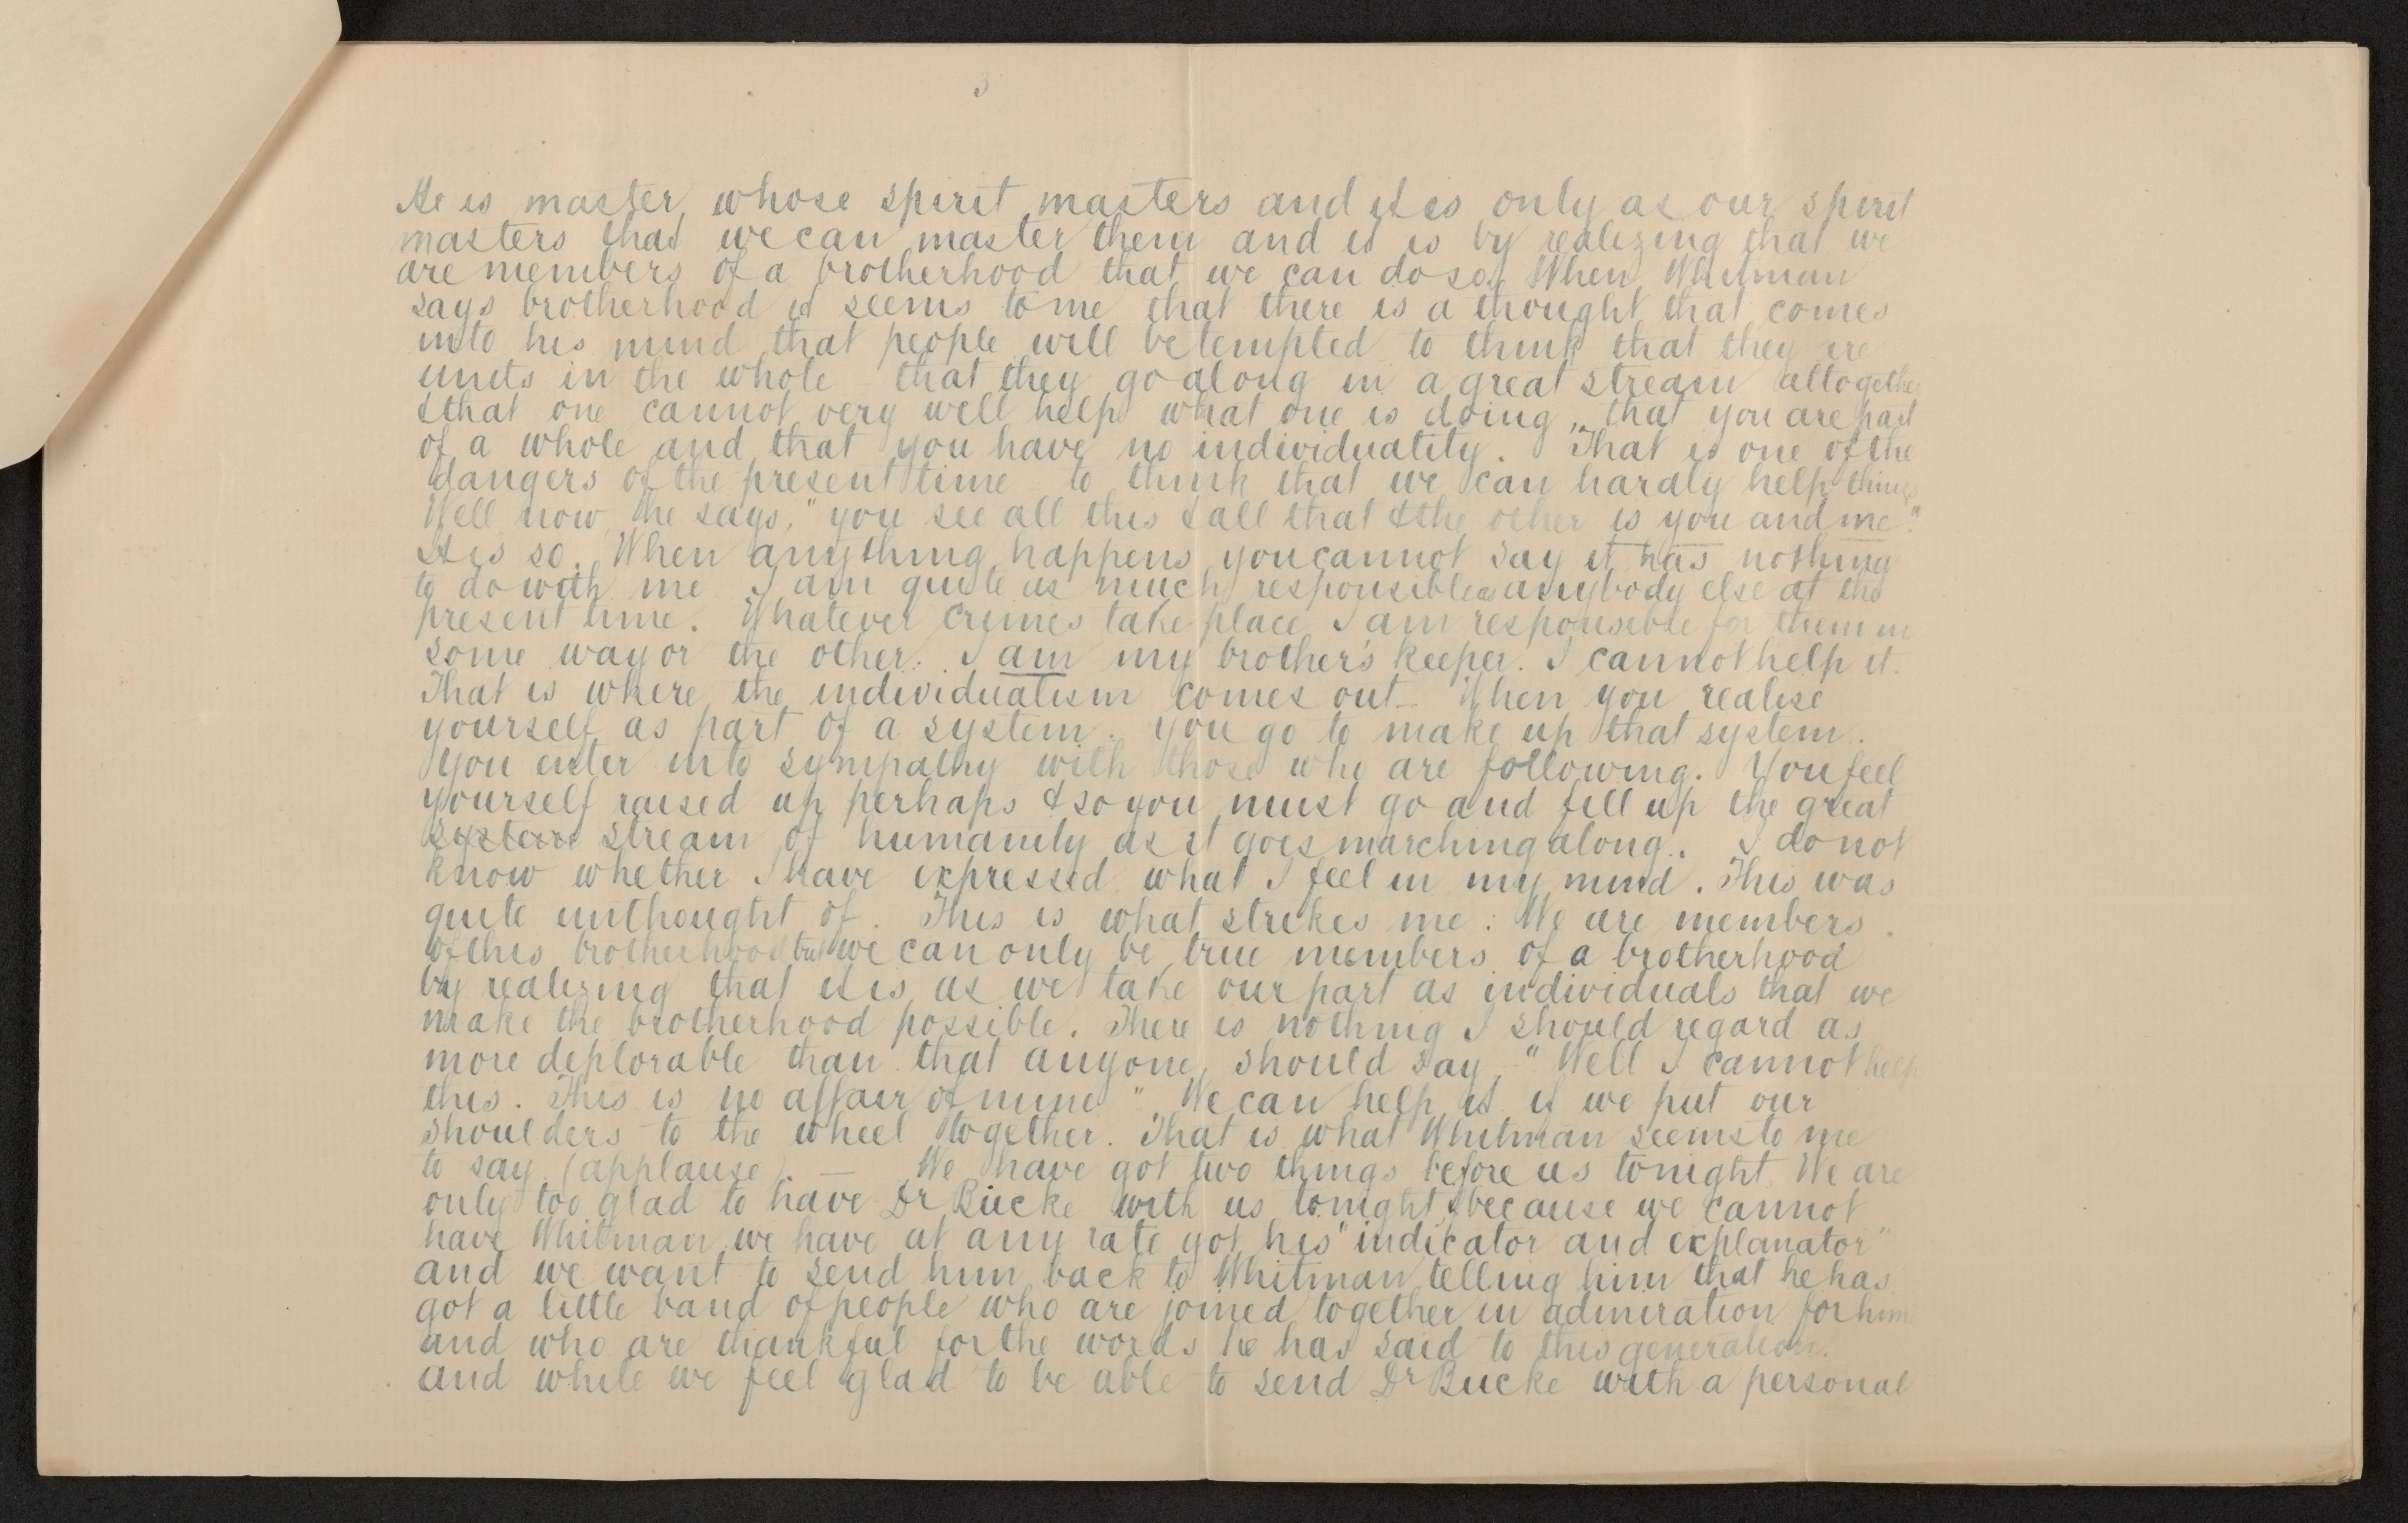 3
He is master whose spirit masters and it is only as our spirit
masters that we can master them and it is by realizing that we
are members of a brotherhood that we can do so. When Whitman
says brotherhood it seems to me that there is a thought that comes
into his mind that people will be tempted to think that they are
units in the whole that they go along in a great stream altogether
& that one cannot very well help what one is doing, that you are part
of a whole and that you have no individuality. That is one of the
dangers of the present time to think that we can hardly help things
Well now, he says, "you see all this & all that & the other is you and me."
It is so. When anything happens you cannot say it has nothing
to do with me. I am quite as much responsible as anybody else at the
present time. Whatever crimes take place I am responsible for them in
some way or the other. I am my brother's keeper. I cannot help it.
That is where the individualism comes out – When you realise
yourself as part of a system. You go to make up that system.
You enter into sympathy with those who are following. You feel
yourself raised up perhaps & so you must go and fill up the great
system stream of humanity as it goes marching along. I do not
know whether I have expressed what I feel in my mind. This was
quite unthought of. This is what strikes me: We are members
of this brotherhood but we can only be true members of a brotherhood
by realizing that it is as we take our part as individuals that we
make the brotherhood possible. There is nothing I should regard as
more deplorable than that anyone should say, "Well I cannot help
this. This is no affair of mine". We can help it if we put our
shoulders to the wheel together. That is what Whitman seems to me
to say. (applause). — We have got two things before us tonight. We are
only too glad to have Dr Bucke with us tonight, & because we cannot
have Whitman we have at any rate got his "indicator and explanator"
and we want to send him back to Whitman telling him that he has
got a little band of people who are joined together in admiration for him
and who are thankful for the words he has said to this generation.
and while we feel glad to be able to send Dr Bucke with a personal